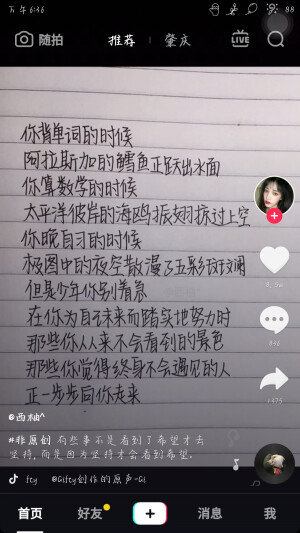 下午6:46
88
随拍
推荐
肇庆
LIVE
你背单词的时候
阿拉斯加的鳕鱼正跃出水面
你算数学的时候
太平洋彼岸的海鸥振翅掠过上空
你晚自习的时候
极图中的夜空散漫了五彩斑斓
但是少年你别着急
在你为自己未来而踏实地努力时
那些你从来不会看到的景色
那些你觉得终身不会遇见的人
正一步步向你走来
@西柚^
#非原创 有些事不是看到了希望才去
坚持,而是因为坚持才会看到希望。
1475
fty @Gifty创作的原声-Gi
首页
好友
消息
我